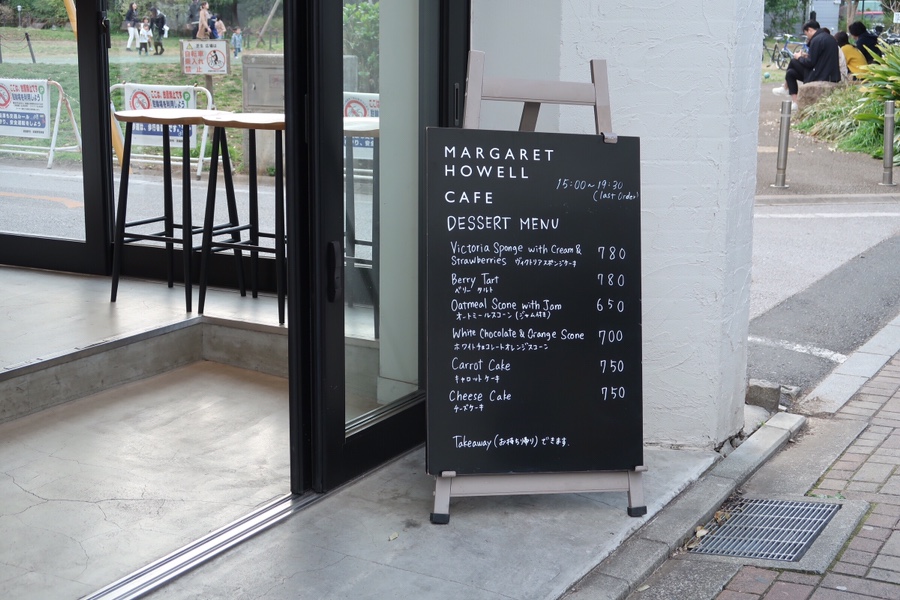 MARGARET
HOWELL
CAFE
15:00~19:30
(last order)
DESSERT MENU
Victoria Sponge with Cream &
Strawberries ヴィクトリアスポンジケーキ 780
Berry Tart 780
ベリータルト
Oatmeal Scone with Jam 650
オートミールスコーン(ジャム付き)
White Chocolate & Orange Scone 700
ホワイトチョコレートオレンジスコーン
Carrot Cake 750
キャロットケーキ
Cheese Cake 750
チーズケーキ
Takeaway (お持ち帰り) できます.